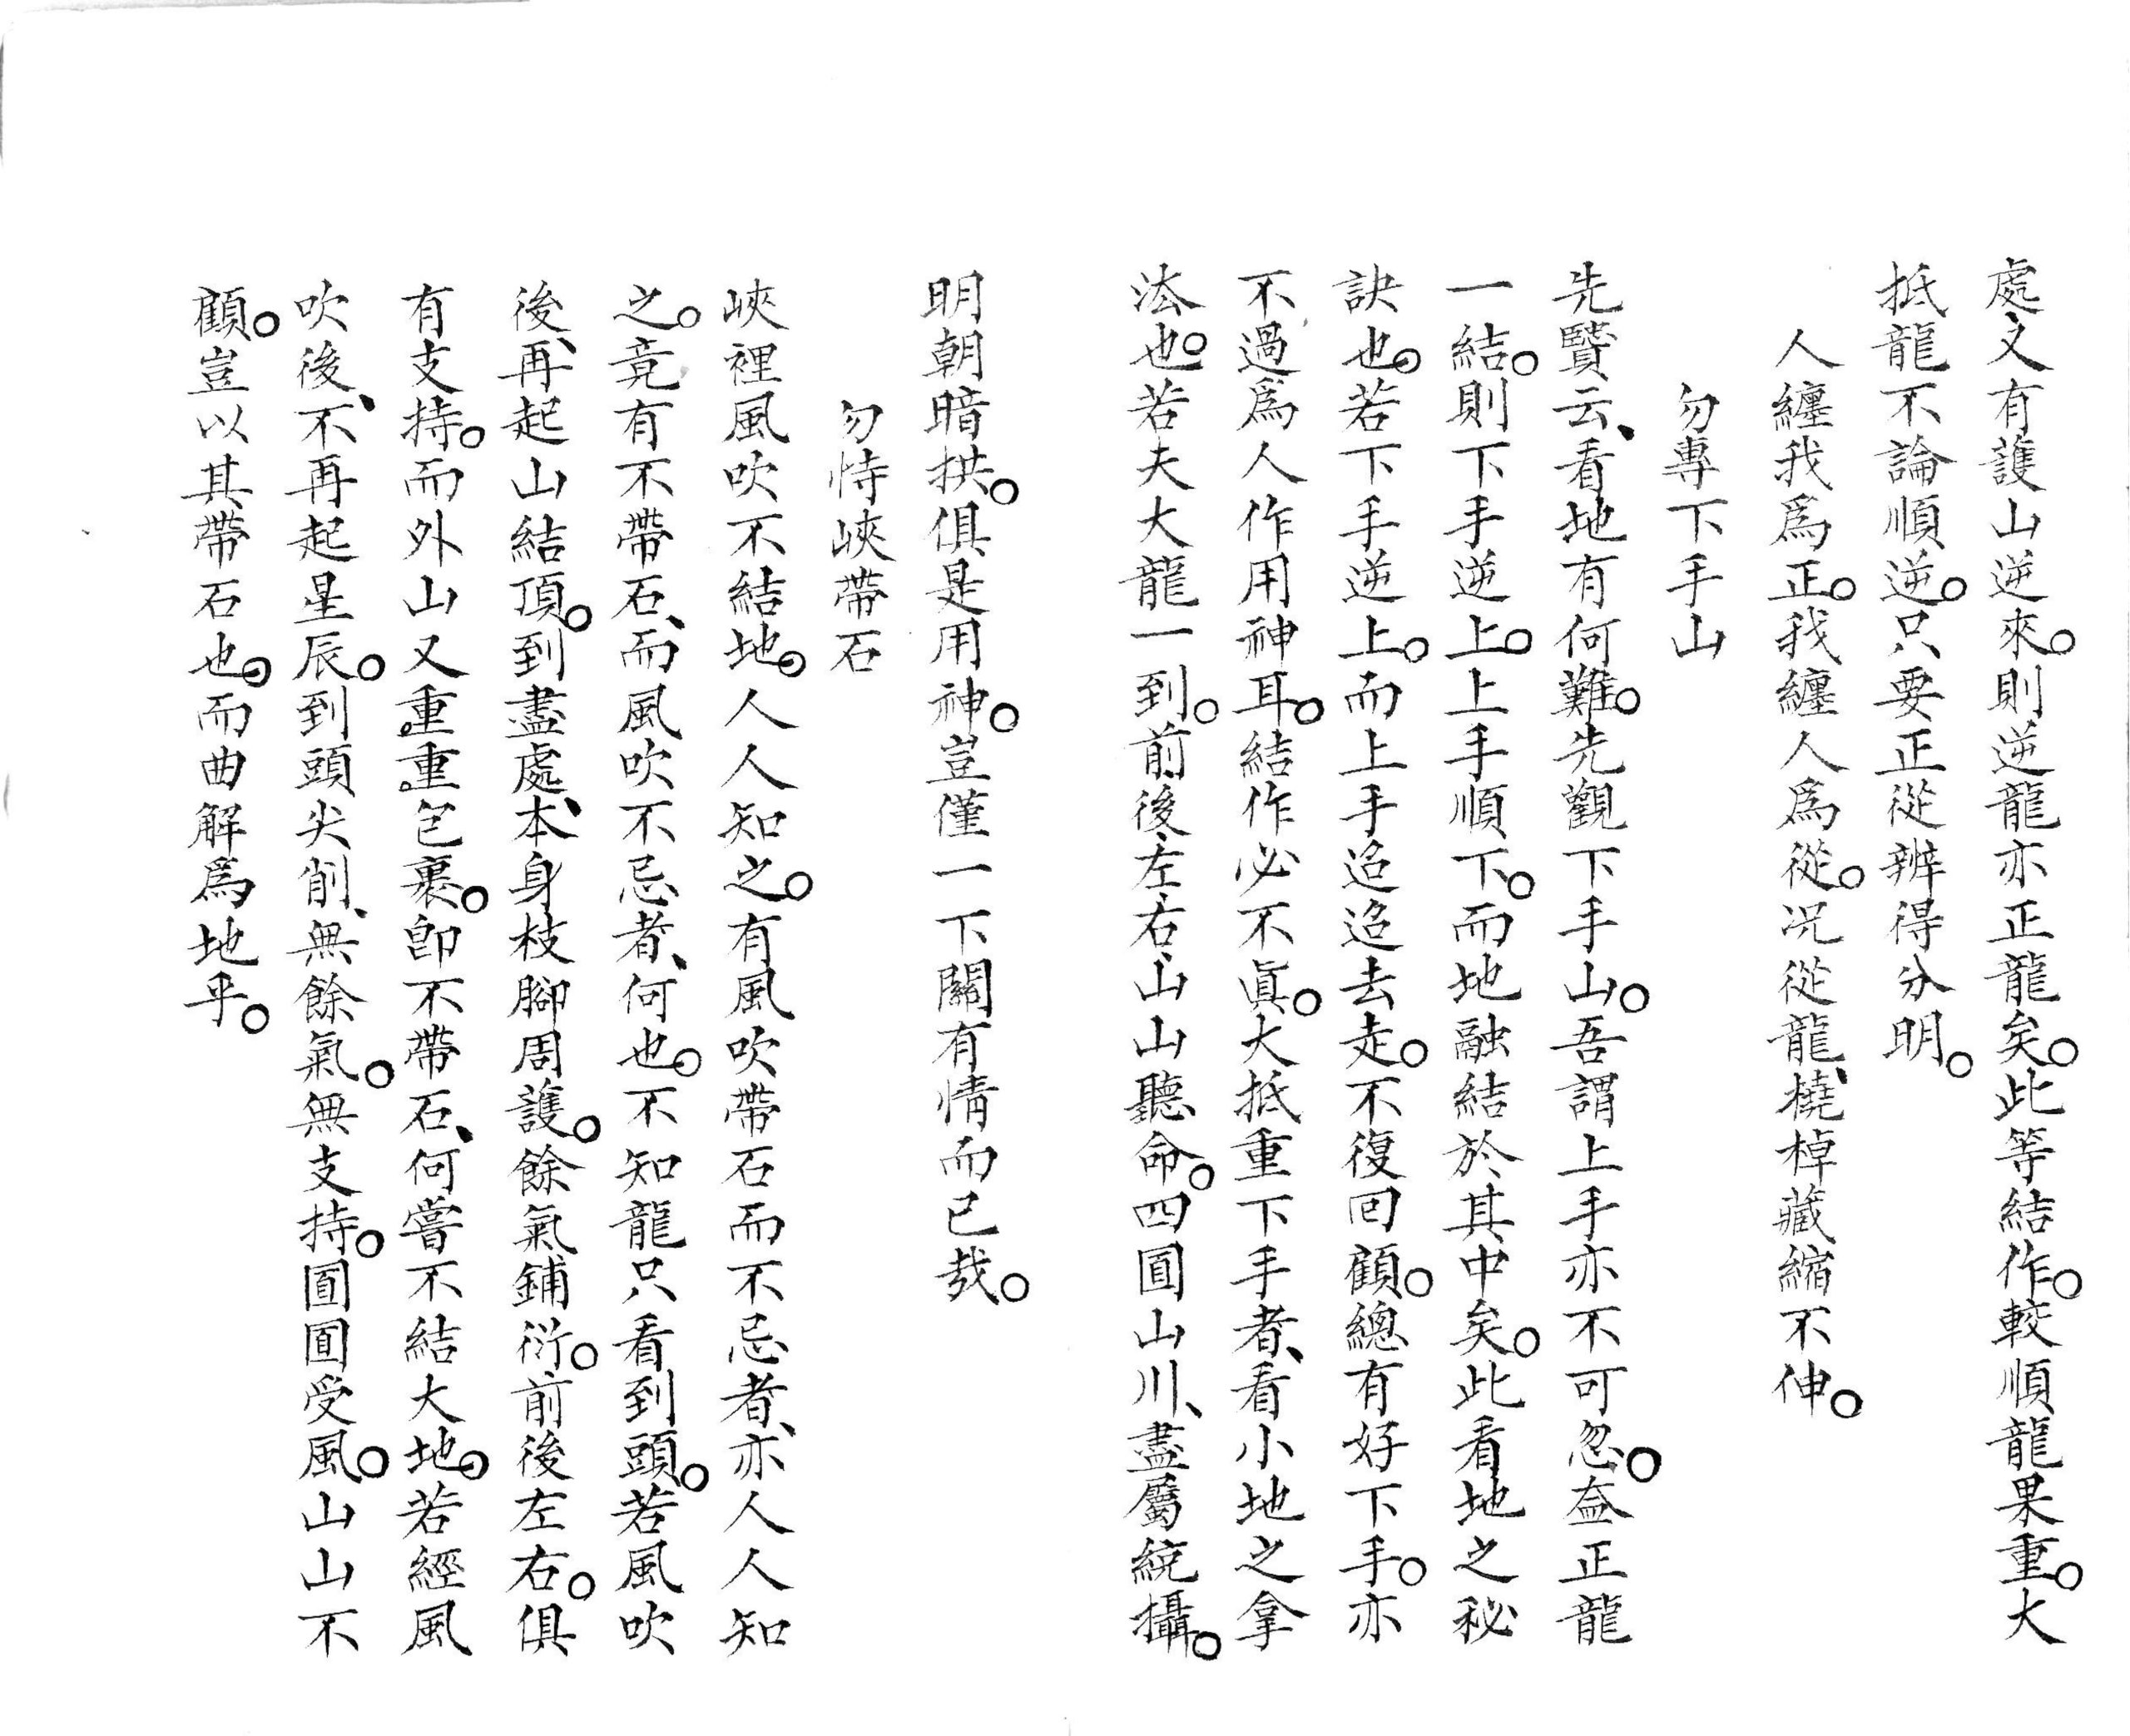 處又有護山逆來。則逆龍亦正龍矣。此等結作。較順龍果重。大
抵龍不論順逆。只要正從辨得分明。
人纏我爲正。我纏人爲從。况從龍、橈棹藏縮不伸。
勿專下手山
先賢云、看地有何難。先觀下手山。吾謂上手亦不可忽。葢正龍
一結。則下手逆上。上手順下。而地融結於其中矣。此看地之秘
訣也。若下手逆上。而上手迢迢去走。不復回顧。總有好下手。亦
不過爲人作用神耳。結作必不眞。大抵重下手者、看小地之拿
法也。若夫大龍一到。前後左右山山聽命。四圓山川、盡屬統攝。
明朝暗拱。俱是用神。豈僅一下關有情而已哉。
勿恃峽帶石
峽裡風吹不結地。人人知之。有風吹帶石而不忌者、亦人人知
之。竟有不帶石、而風吹不忌者、何也。不知龍只看到頭。若風吹
後、再起山結頂。到盡處、本身枝腳周護。餘氣鋪衍。前後左右。俱
有支持。而外山又重重包裹。卽不帶石、何嘗不結大地。若經風
吹後、不再起星辰。到頭尖削、無餘氣。無支持。圓圓受風。山山不
顧。豈以其帶石也。而曲解爲地乎。